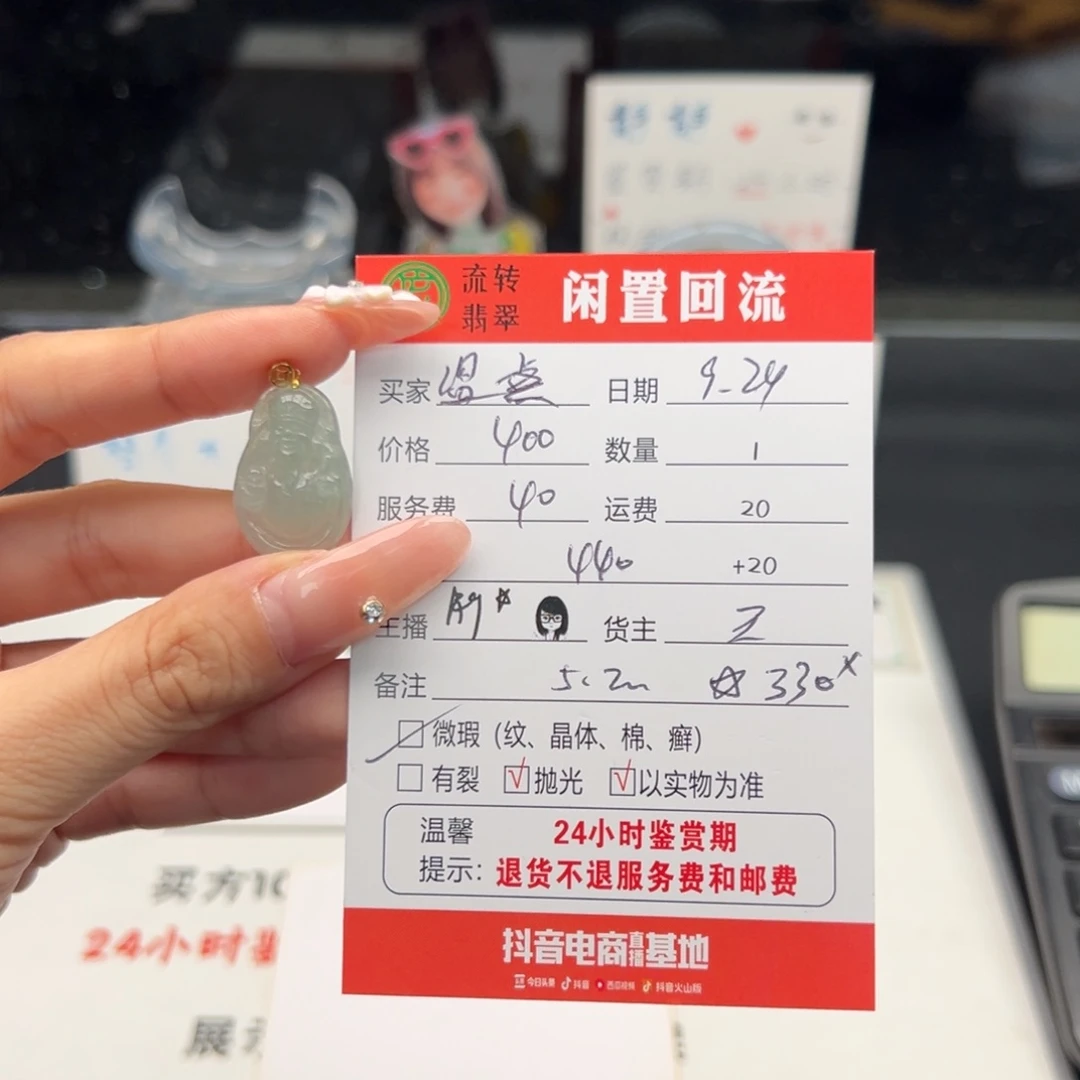 流转 闲置回流
翡翠
买家 温点 日期 9-24
价格 400 数量 1
服务费 40 运费 20
440 +20
主播 货主 Z
备注 ☆330
微瑕(纹、晶体、棉、癣)
有裂 √抛光 √以实物为准
温馨 24小时鉴赏期
提示: 退货不退服务费和邮费
抖音电商直播基地
今日头条 抖音 西瓜视频 抖音火山版
买方10
24小时鉴
展示